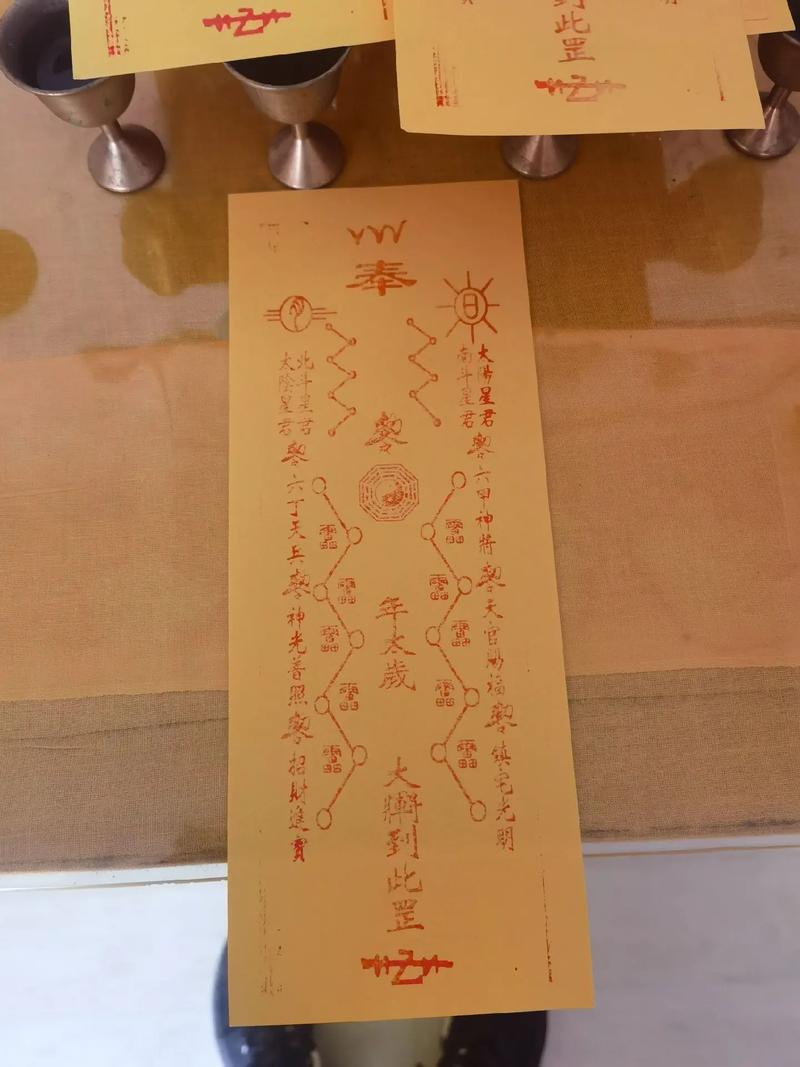 到此罡
奉
日
太陽星君
南斗星君
六甲神將
天官賜福
鎮宅光明
年太歲
大將到此罡
北斗星君
太陰星君
六丁天兵
神光普照
招財進寶